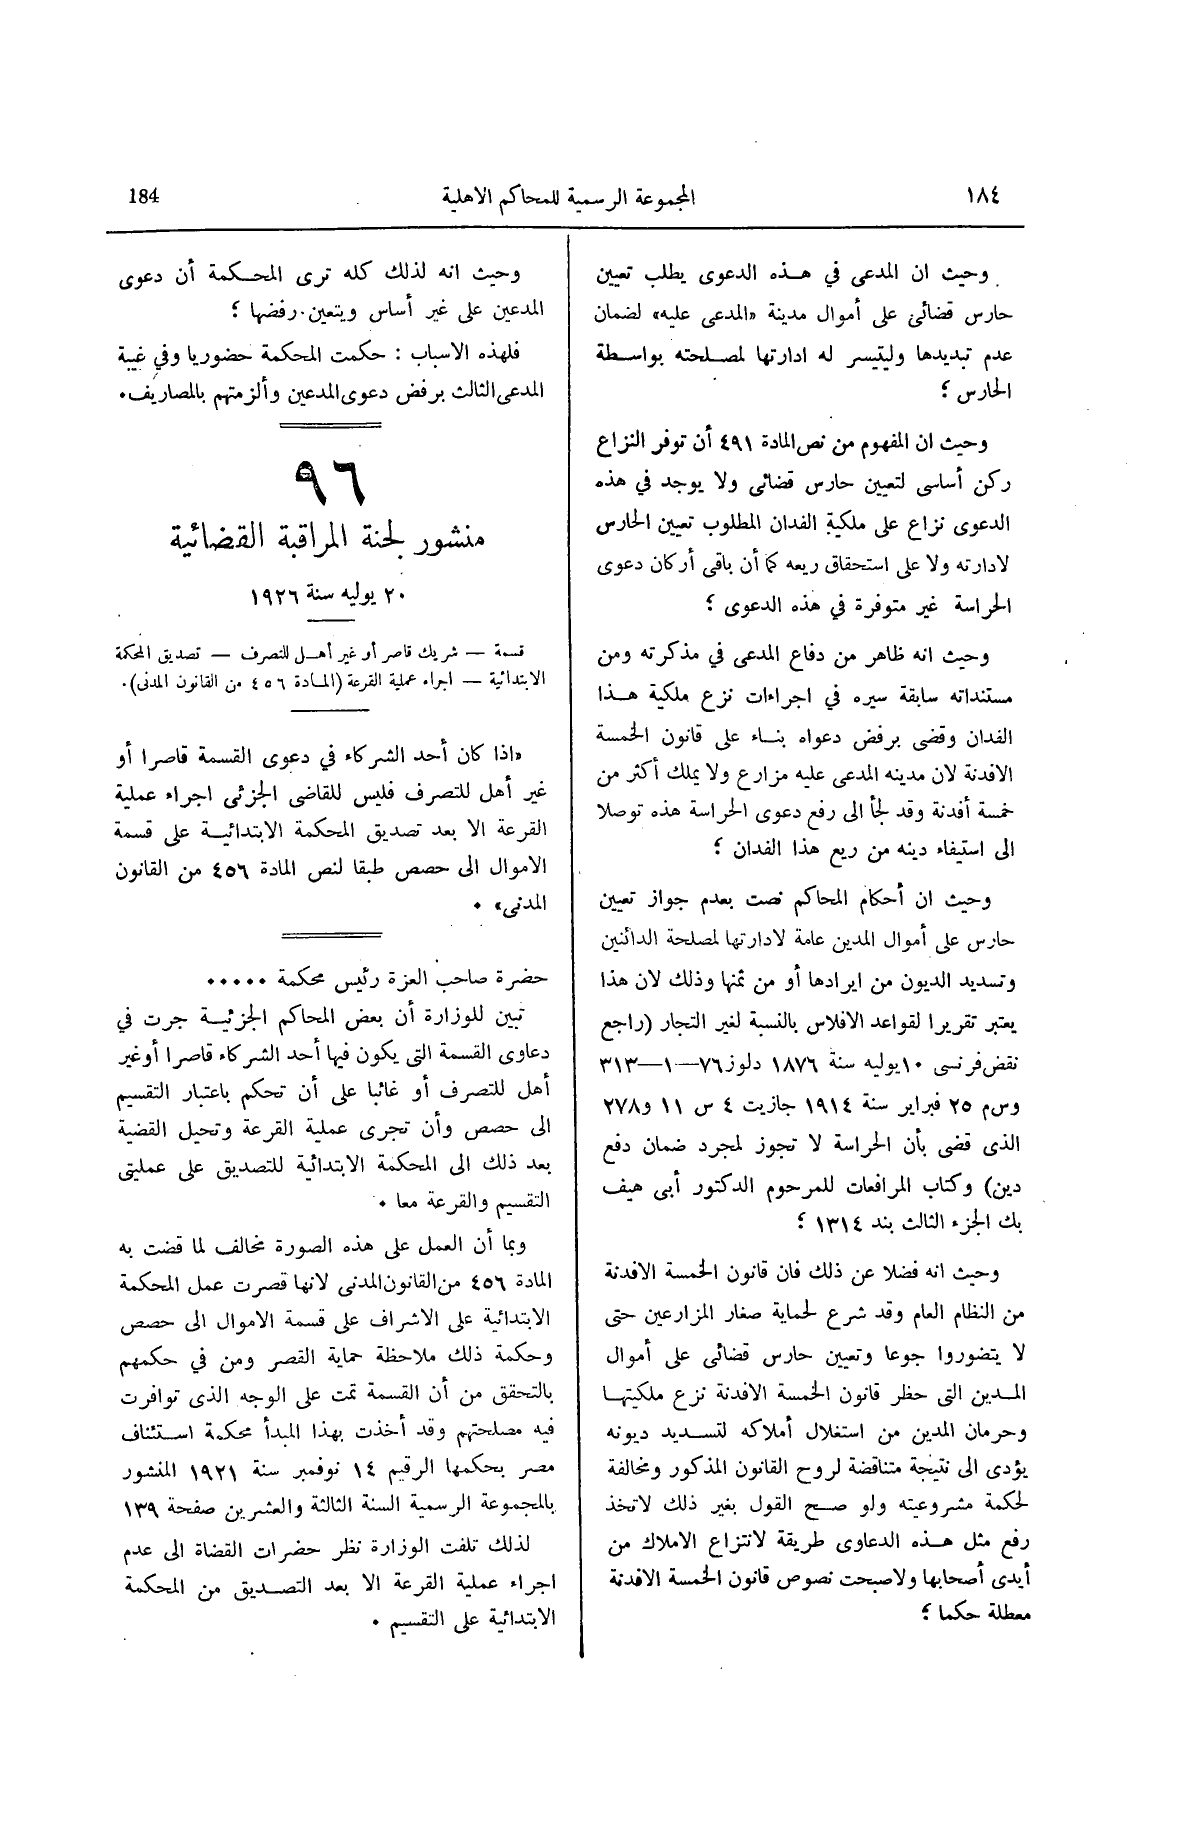 ١٨٤ المجموعة الرسمية للمحاكم الاهلية 184
وحيث ان المدعى في هذه الدعوى يطلب تعيين
حارس قضائى على أموال مدينة «المدعى عليه» لضمان
عدم تبديدها وليتيسر له ادارتها لمصلحته بواسطة
الحارس ؛
وحيث ان المفهوم من نص المادة ٤٩١ أن توفر النزاع
ركن أساسى لتعيين حارس قضائى ولا يوجد في هذه
الدعوى نزاع على ملكية الفدان المطلوب تعيين الحارس
لادارته ولا على استحقاق ريعه كما أن باقى أركان دعوى
الحراسة غير متوفرة في هذه الدعوى ؛
وحيث انه ظاهر من دفاع المدعى في مذكرته ومن
مستنداته سابقة سيره في اجراءات نزع ملكية هذا
الفدان وقضى برفض دعواه بناء على قانون الخمسة
الافدنة لان مدينه المدعى عليه مزارع ولا يملك أكثر من
خمسة أفدنة وقد لجأ الى رفع دعوى الحراسة هذه توصلا
الى استيفاء دينه من ريع هذا الفدان ؛
وحيث ان أحكام المحاكم نصت بعدم جواز تعيين
حارس على أموال المدين عامة لادارتها لمصلحة الدائنين
وتسديد الديون من ايرادها أو من ثمنها وذلك لان هذا
يعتبر تقريرا لقواعد الافلاس بالنسبة لغير التجار (راجع
نقض فرنسى ١٠ يوليه سنة ١٨٧٦ دلوز ٧٦—١—٣١٣
وس م ٢٥ فبراير سنة ١٩١٤ جازيت ٤ س ١١ و٢٧٨
الذى قضى بأن الحراسة لا تجوز لمجرد ضمان دفع
دين) وكتاب المرافعات للمرحوم الدكتور أبى هيف
بك الجزء الثالث بند ١٣١٤ ؛
وحيث انه فضلا عن ذلك فان قانون الخمسة الافدنة
من النظام العام وقد شرع لحماية صغار المزارعين حتى
لا يتضوروا جوعا وتعيين حارس قضائى على أموال
المدين التى حظر قانون الخمسة الافدنة نزع ملكيتها
وحرمان المدين من استغلال أملاكه لتسديد ديونه
يؤدى الى نتيجة متناقضة لروح القانون المذكور ومخالفة
لحكمة مشروعيته ولو صح القول بغير ذلك لاتخذ
رفع مثل هذه الدعاوى طريقة لانتزاع الاملاك من
أيدى أصحابها ولاصبحت نصوص قانون الخمسة الافدنة
معطلة حكما ؛
وحيث انه لذلك كله ترى المحكمة أن دعوى
المدعين على غير أساس ويتعين رفضها ؛
فلهذه الاسباب : حكمت المحكمة حضوريا وفي غيبة
المدعى الثالث برفض دعوى المدعين وألزمتهم بالمصاريف.
٩٦
منشور لجنة المراقبة القضائية
٢٠ يوليه سنة ١٩٢٦
قسمة — شريك قاصر أو غير أهل للتصرف — تصديق المحكمة
الابتدائية — اجراء عملية القرعة (المادة ٤٥٦ من القانون المدنى).
«اذا كان أحد الشركاء في دعوى القسمة قاصرا أو
غير أهل للتصرف فليس للقاضى الجزئى اجراء عملية
القرعة الا بعد تصديق المحكمة الابتدائية على قسمة
الاموال الى حصص طبقا لنص المادة ٤٥٦ من القانون
المدنى» .
حضرة صاحب العزة رئيس محكمة .....
تبين للوزارة أن بعض المحاكم الجزئية جرت في
دعاوى القسمة التى يكون فيها أحد الشركاء قاصرا أوغير
أهل للتصرف أو غائبا على أن تحكم باعتبار التقسيم
الى حصص وأن تجرى عملية القرعة وتحيل القضية
بعد ذلك الى المحكمة الابتدائية للتصديق على عمليتى
التقسيم والقرعة معا .
وبما أن العمل على هذه الصورة مخالف لما قضت به
المادة ٤٥٦ من القانون المدنى لانها قصرت عمل المحكمة
الابتدائية على الاشراف على قسمة الاموال الى حصص
وحكمة ذلك ملاحظة حماية القصر ومن في حكمهم
بالتحقق من أن القسمة تمت على الوجه الذى توافرت
فيه مصلحتهم وقد أخذت بهذا المبدأ محكمة استئناف
مصر بحكمها الرقيم ١٤ نوفمبر سنة ١٩٢١ المنشور
بالمجموعة الرسمية السنة الثالثة والعشرين صفحة ١٣٩
لذلك تلفت الوزارة نظر حضرات القضاة الى عدم
اجراء عملية القرعة الا بعد التصديق من المحكمة
الابتدائية على التقسيم .